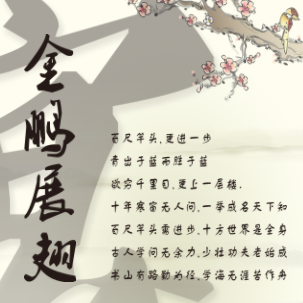 金鹏展翅
百尺竿头,更进一步
青出于蓝而胜于蓝
欲穷千里目,更上一层楼.
十年寒窗无人问,一举成名天下知
百尺竿头需进步,十方世界是全身
古人学问无余力,少壮功夫老始成
书山有路勤为径,学海无涯苦作舟